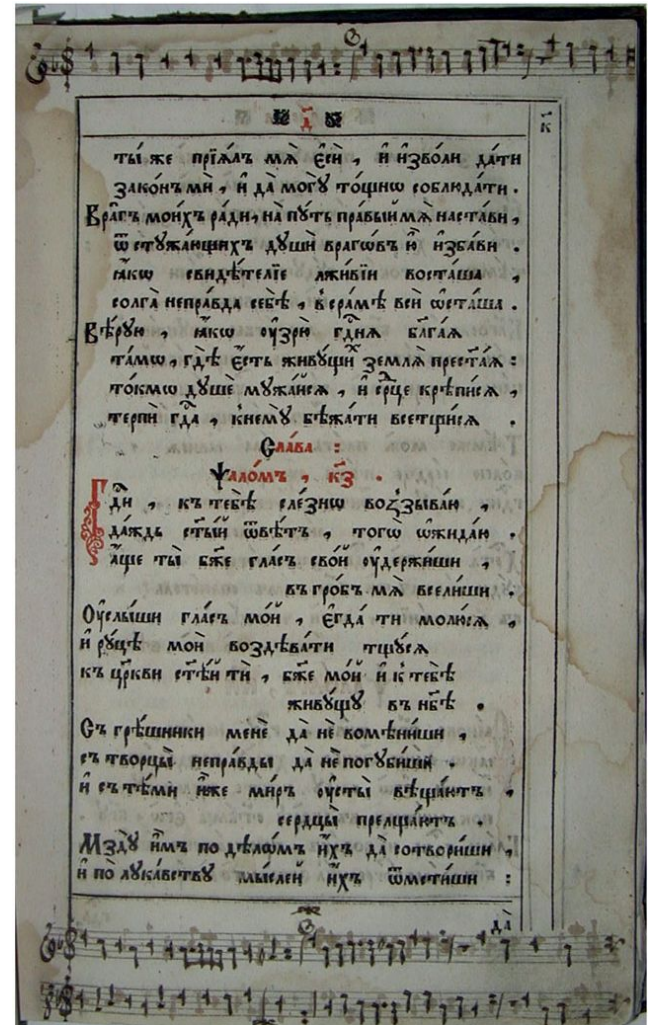 д҃
к҃
ты́ же прїѧ́лъ мѧ̀ є҆сѝ , и҆ и҆зво́ли да́ти
зако́нъ мѝ , и҆ да̀ могу̀ то́щнѡ соблюда́ти .
Вра̑гъ мои́хъ ра́ди, на̀ пу́ть пра́вый мѧ̀ наста́ви ,
ѿ стужа́ющихъ душѝ врагѡ́въ и҆̀ и҆зба́ви .
ꙗ҆́кѡ свидѣ́телїе лжи́вїи воста́ша ,
солга̀ непра́вда себѣ̀ , в̾ сра́мѣ всѝ ѡ҆ста́ша .
Вѣ́рую , ꙗ҆́кѡ ᲂу҆зрю̀ гдⷭ҇нѧ бл҃га́ѧ
та́мѡ , гдѣ̀ є҆́сть живу́щих̾ землѧ̀ прест҃а́ѧ :
то́кмѡ душѐ мужа́йсѧ , и҆ се́рдце крѣпи́сѧ ,
терпѝ гдⷭ҇а , к̾нему̀ бѣжа́ти всетщи́сѧ .
Сла́ва :
Ѱало́мъ , к҃з .
Гдⷭ҇и , къ тебѣ̀ сле́знѡ воззыва́ю ,
да́ждь ст҃ы́й ѿвѣ́тъ , тогѡ̀ ѡ҆жида́ю .
А҆́ще ты̀ бж҃е гла́съ сво́й ᲂу҆держи́ши ,
въ гро́бъ мѧ̀ всели́ши .
Оу҆слы́ши гла́съ мо́й , є҆гда́ ти молю́сѧ ,
и҆ ру́цѣ моѝ воздѣва́ти тщу́сѧ
къ цр҃кви ст҃ѣ́й тѝ , бж҃е мо́й и҆ к̾ тебѣ̀
живу́щу въ нб҃ѣ .
Съ грѣ́шники менѐ да̀ нѐ вомѣни́ши ,
съ творцы̀ непра́вды да̀ нѐ погуби́ши .
и҆ съ тѣ́ми и҆̀же ми́ръ ᲂу҆сты̀ вѣща́ютъ ,
сердцы̀ прелща́ютъ .
Мзду̀ и҆̀мъ по дѣлѡ́мъ и҆́хъ да̀ сотвори́ши ,
и҆ по̀ лука́вству мы́слей и҆́хъ ѿмсти́ши :
да̀